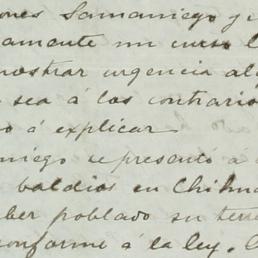 ones Samaniego y
amente un curso
mostrar urgencia al
sea á los contrario
o á explicar
niego se presentó á
baldíos en Chihua
ber poblado su terr
conforme á la ley.